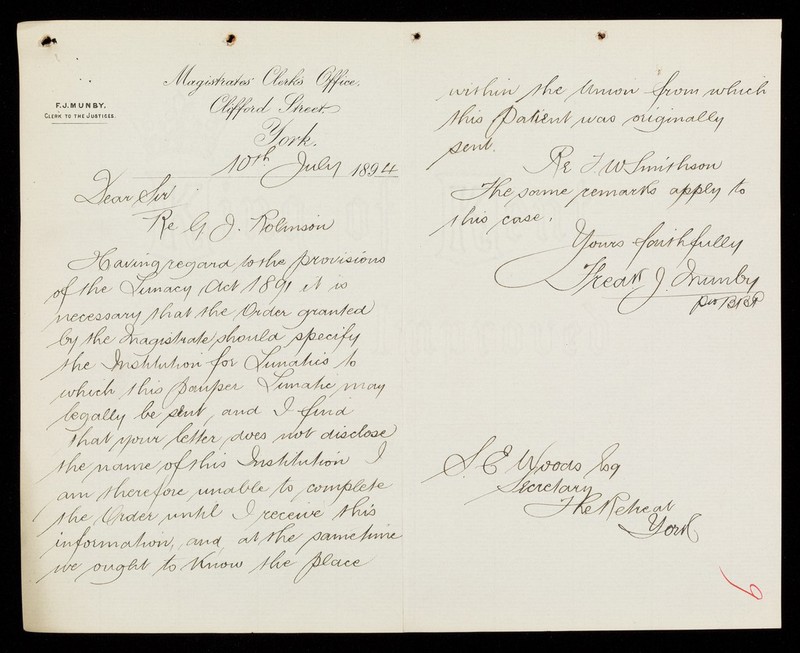 F.J. MUNBY.
CLERK TO THE JUSTICES.
Magistrates' Clerk's Office,
Clifford Street,
York.
10th July 1894
Dear Sir
Re G J. Robinson
Having regard to the provisions
of the Lunacy Act 1891 it is
necessary that the Order granted
by the Magistrate should specify
the Institution for Lunatics to
which this pauper Lunatic may
legally be sent, and I find
that your letter does not disclose
the name of this Institution I
am therefore unable to complete
the Order until I receive this
information, and at the same time
we ought to know the place
within the Union from which
this Patient was originally
sent.
Re J W Smithson
The same remarks apply to
this case.
Yours faithfully
J. Munby
per
S E Woods Esq
Secretary
The Retreat
York
6